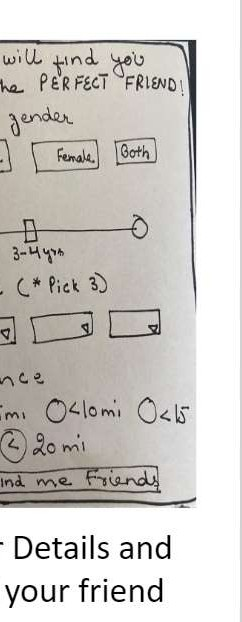 will find you
he PERFECT FRIEND!
gender
Female Both
3-4 yrs
(* Pick 3)
nce
mi <10mi <15
< 20 mi
ind me Friends
r Details and
your friend